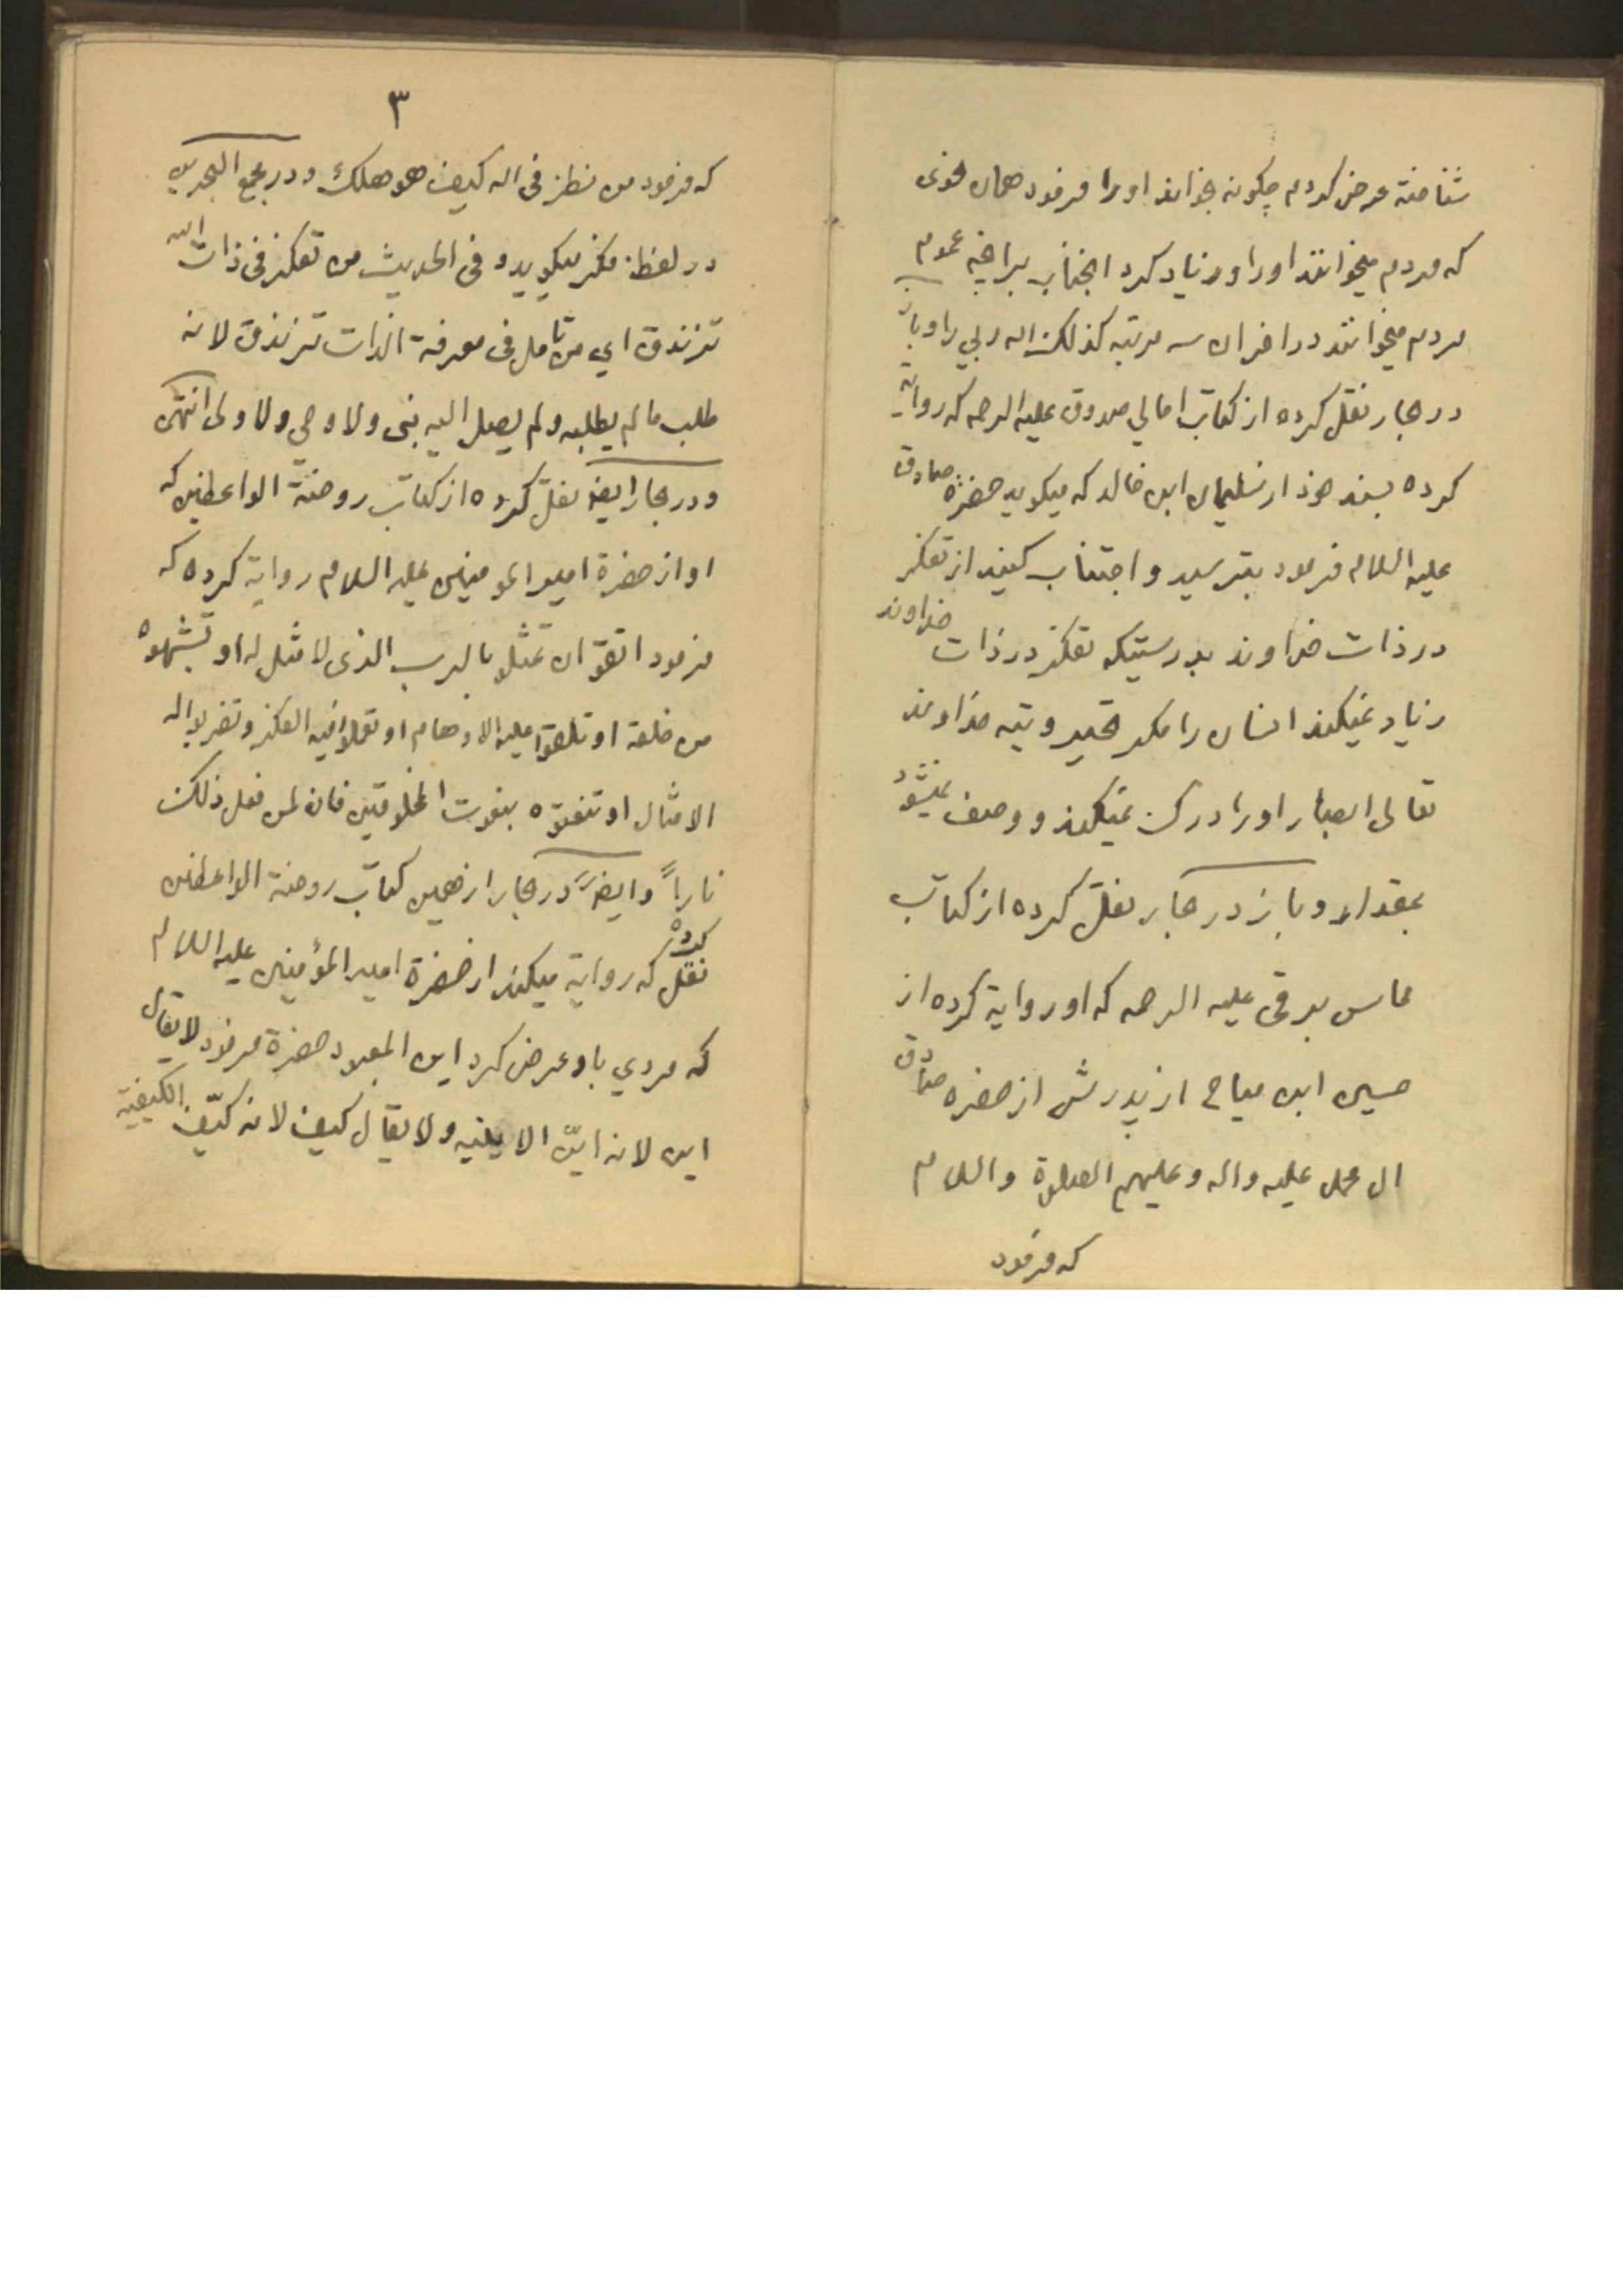 شناخته عرض کردم چکونه بخواند اورا فرمود همان نحوی
که مردم میخوانند اورا و زیاد کرد انجناب براخچه عموم
مردم میخوانند در اخر ان سه مرتبه کذلک الله ربي را و باز
در بحار نقل کرده از کتاب امالي صدوق علیه الرحمه که روایة
کرده بسند خود از سلیمان ابن خالد که میکوید حضرة صادق
علیه السلام فرمود بترسید و اجتناب کنید از تفکر
در ذات خداوند بدرستیکه تفکر در ذات خداوند
زیاد نمیکند انسان را مکر تحیر و تیه خداوند
تعالی ابصار اورا درک نمیکند و وصف نمیشود
بمقدار و باز در بحار نقل کرده از کتاب
محاسن برقی علیه الرحمه که او روایة کرده از
حسین ابن میاح از پدرش از حضرة صادق
ال محمد علیه واله و علیهم الصلوة والسلام
که فرمود
٣
که فرمود من نظر فی الله کیف هو هلک و در مجمع البحرین
در لفظ فکر میکوید و فی الحدیث من تفکر فی ذات الله
تزندق اي من تامل فی معرفة الذات تزندق لانه
طلب مالم یطلبه ولم یصل الیه نبی ولا وصي ولا ولی انتهی
و در بحار ایضا نقل کرده از کتاب روضة الواعظین که
او از حضرة امیر المومنین علیه السلام روایة کرده که
فرمود اتقوا ان تمثلوا بالرب الذی لا مثل له او تشبهوه
من خلقه او تلقوا علیه الاوهام او تعملوا فیه الفکر و تضربوا له
الامثال او تنعتوه بنعوت المخلوقین فان لمن فعل ذلک
ناراً و ایضاً در بحار از همین کتاب روضة الواعظین
نقل کرده که روایة میکند از حضرة امیر المؤمنین علیه السلام
که مردي باو عرض کرد این المعبود حضرة فرمود لا یقال
این لانه ایّن الاینیه ولا یقال کیف لانه کیّف الکیفیة